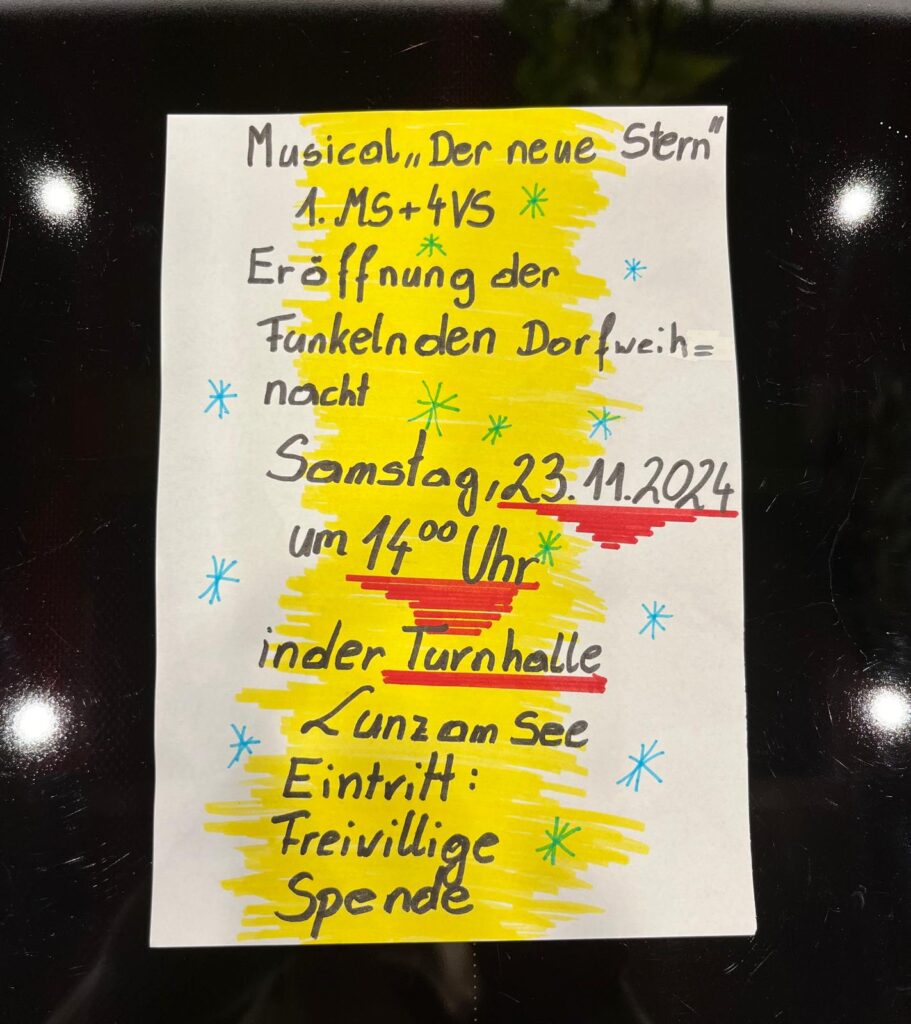 Musical „Der neue Stern"
1. MS + 4 VS
Eröffnung der
Funkelnden Dorfweih=
nacht
Samstag, 23.11.2024
um 14⁰⁰ Uhr
in der Turnhalle
Lunz am See
Eintritt:
Freivillige
Spende